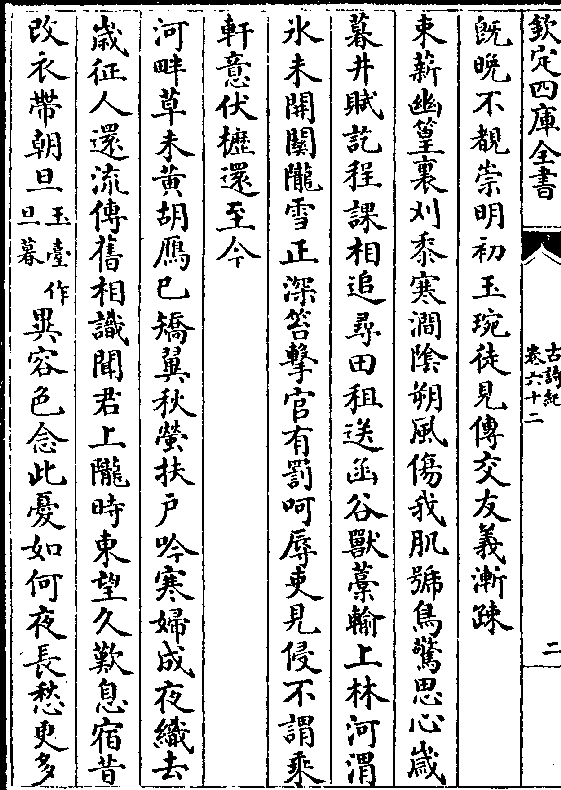 欽定四庫全書
古詩紀
卷六十二
二
既晚不覩崇明初玉琬徒見傳交友義漸疎
束薪幽篁裏刈黍寒澗陰朔風傷我肌號鳥驚思心歲
暮井賦訖程課相追尋田租送函谷獸藁輸上林河渭
氷未開關隴雪正深笞擊官有罰呵辱吏見侵不謂乘
軒意伏櫪還至今
河畔草未黃胡鴈已矯翼秋螢扶户吟寒婦成夜織去
歲征人還流傳舊相識聞君上隴時東望久歎息宿昔
改衣帶朝旦玉臺作旦暮異容色念此憂如何夜長愁更多